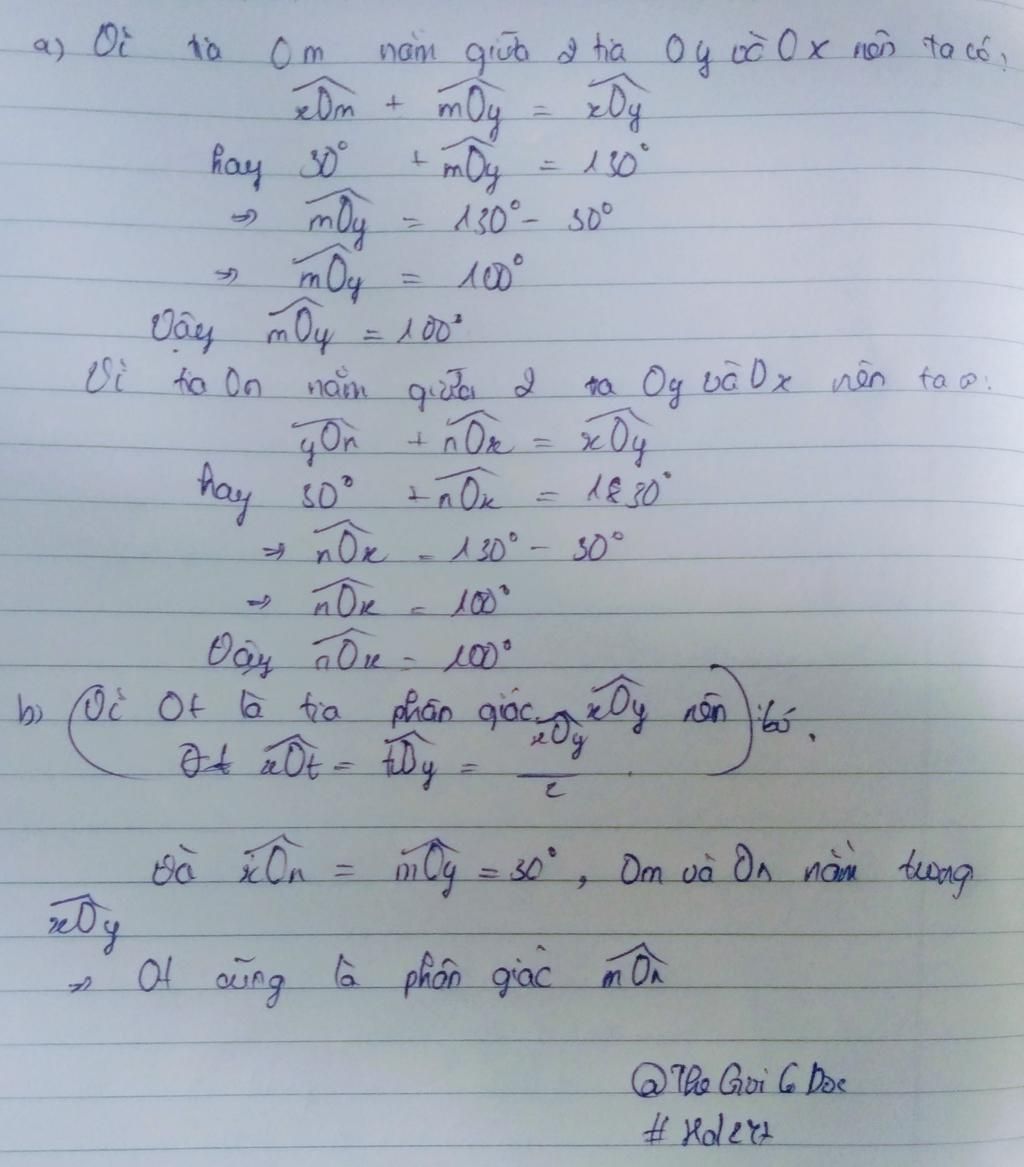 a) Vì tia Om nằm giữa 2 tia Oy và Ox nên ta có:
xOm + mOy = xOy
hay 30° + mOy = 130°
⇒ mOy = 130° - 30°
⇒ mOy = 100°
Vậy mOy = 100°
Vì tia On nằm giữa 2 tia Oy và Ox nên ta có:
yOn + nOx = xOy
hay 30° + nOx = 130°
⇒ nOx = 130° - 30°
⇒ nOx = 100°
Vậy nOx = 100°
b) (Vì Ot là tia phân giác xOy nên)
xOt = tOy = xOy/2
Và xOn = mOy = 30°, Om và On nằm trong
xOy
⇒ Ot cũng là phân giác mOn